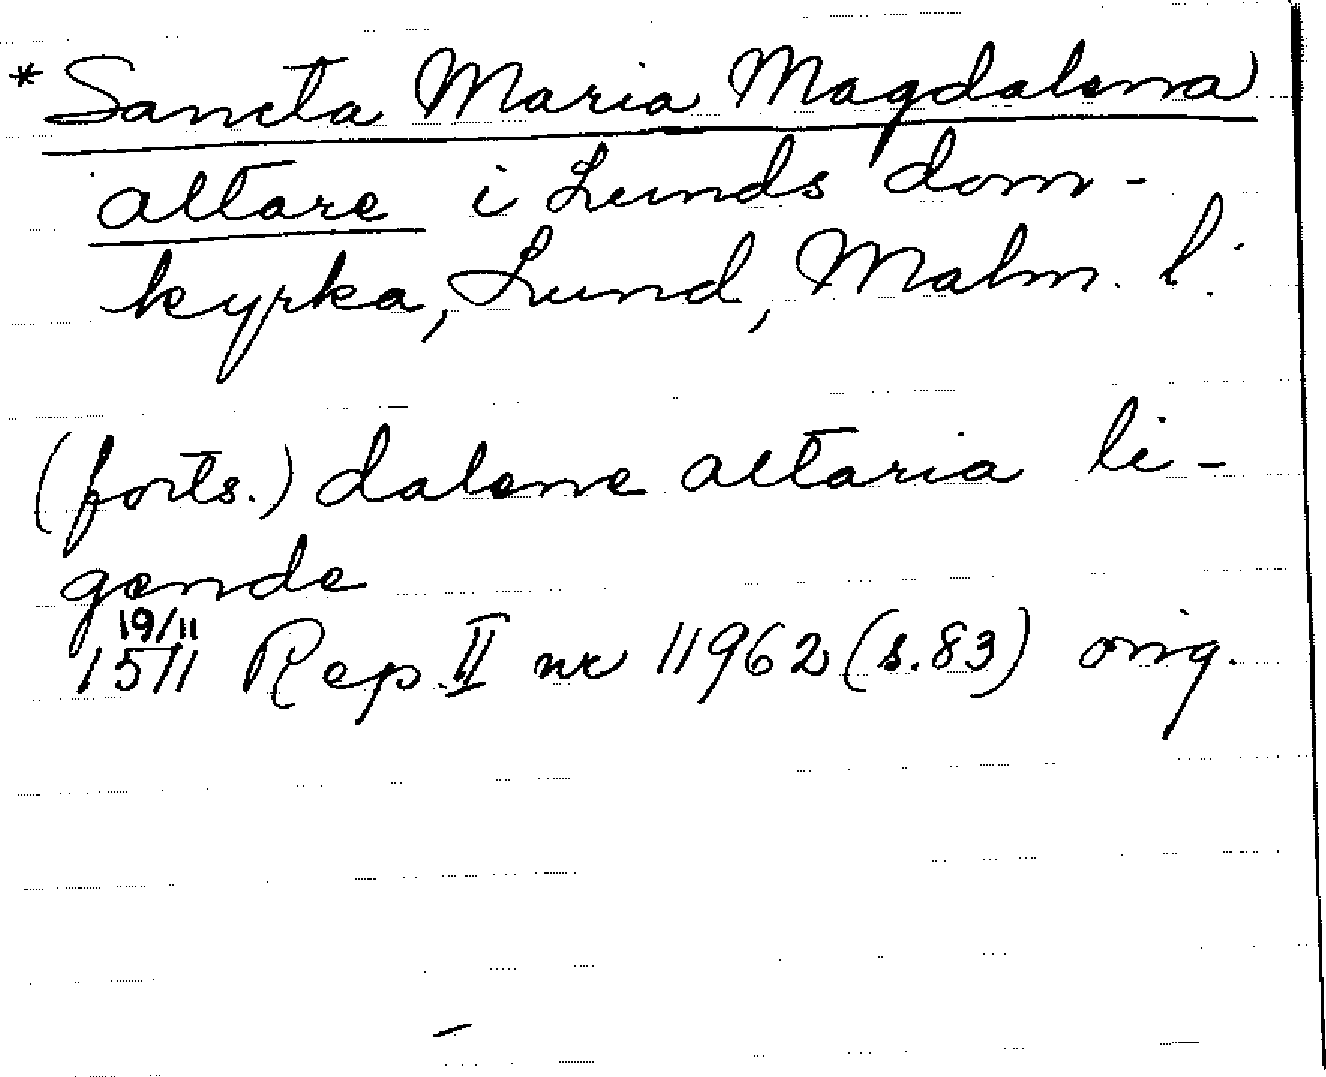 *Sancta Maria Magdalena
altare i Lunds dom-
kyrka, Lund, Malm. l:
(forts.) dalene altaria li-
gende
19/11
1511 Rep II nr 11962 (s.83) orig.